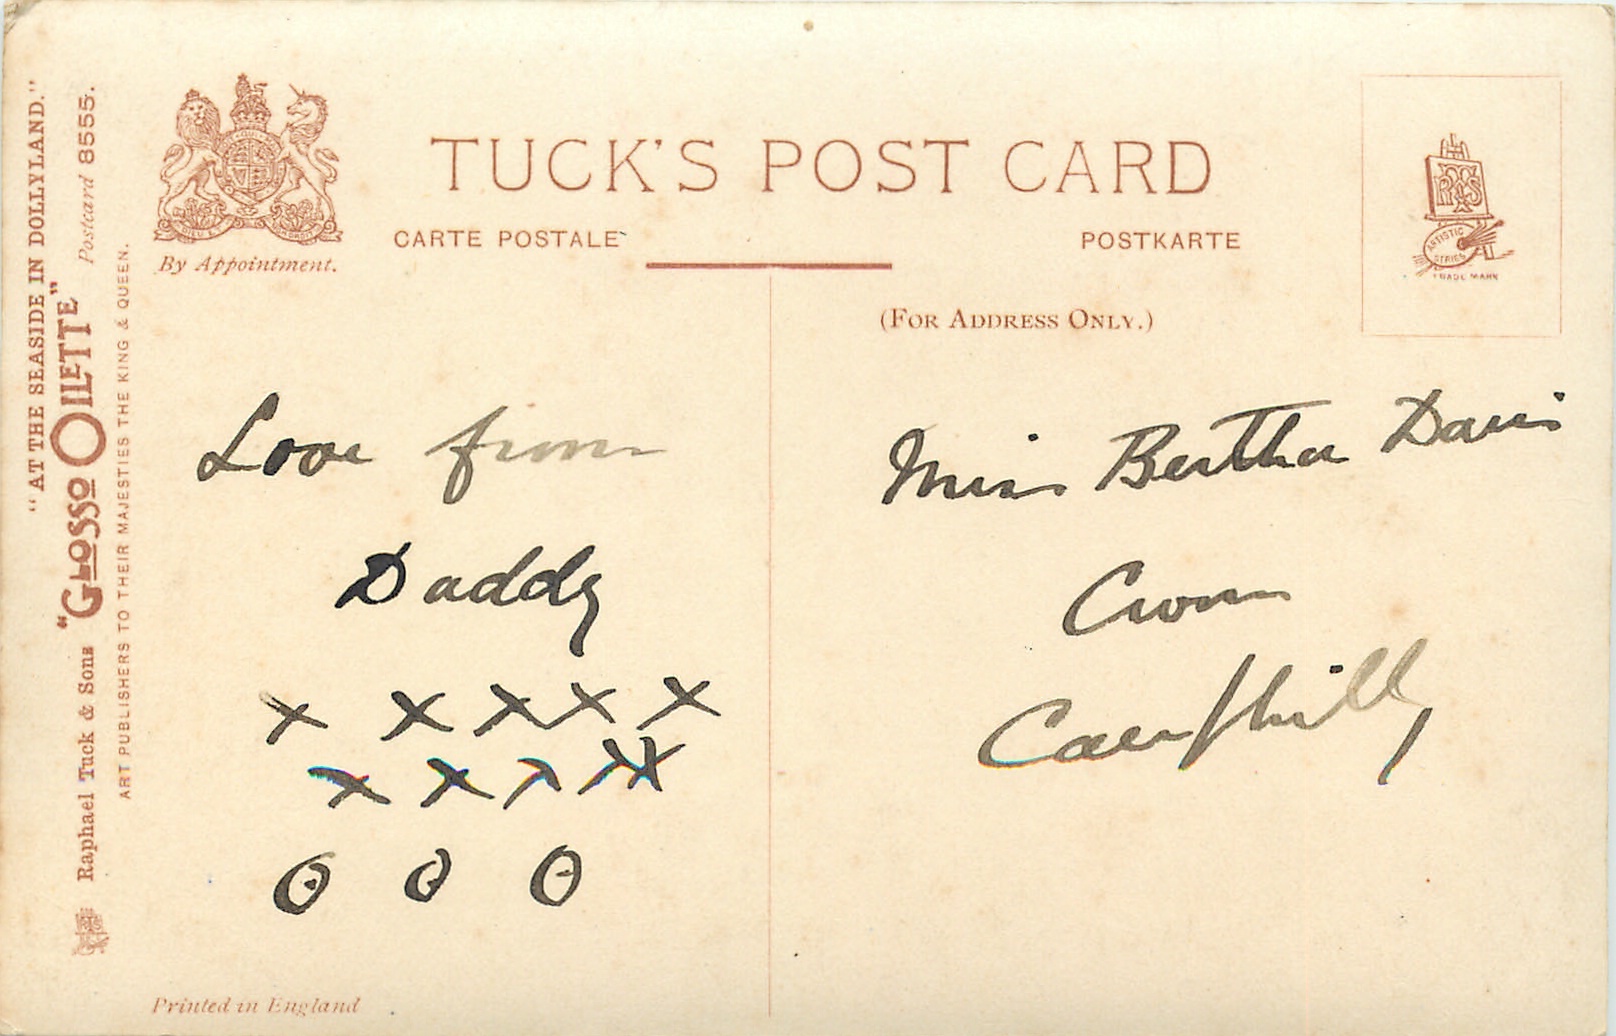 "AT THE SEASIDE IN DOLLYLAND."
Raphael Tuck & Sons "GLOSSO OILETTE" Postcard 8555.
ART PUBLISHERS TO THEIR MAJESTIES THE KING & QUEEN.
By Appointment.
TUCK'S POST CARD
CARTE POSTALE
POSTKARTE
(FOR ADDRESS ONLY.)
ARTISTIC
SERIES
TRADE MARK
Love from
Daddy
x x x x x
x x x x x
O O O
Miss Bertha Davis
Cwm
Caerphilly
Printed in England